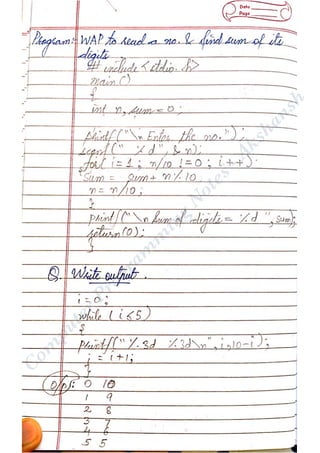 Date
Page
Program:- WAP to read a no. & find sum of its
digits
# include <stdio.h>
main()
{
int n, sum=0;
printf("\n Enter the no.");
scanf(" %d", &n);
for( i=1; n/10 !=0; i++)
sum = sum+ n%10
n= n/10;
}
printf("\n Sum of digits= %d ", sum);
return(0);
}
Q. Write output.
i=0;
while (i≤5)
{
printf("%3d %3d\n", i,10-i);
i = i+1;
}
O/P: 0 10
1 9
2 8
3 7
4 6
5 5
Computer Programming Notes - Akshansh